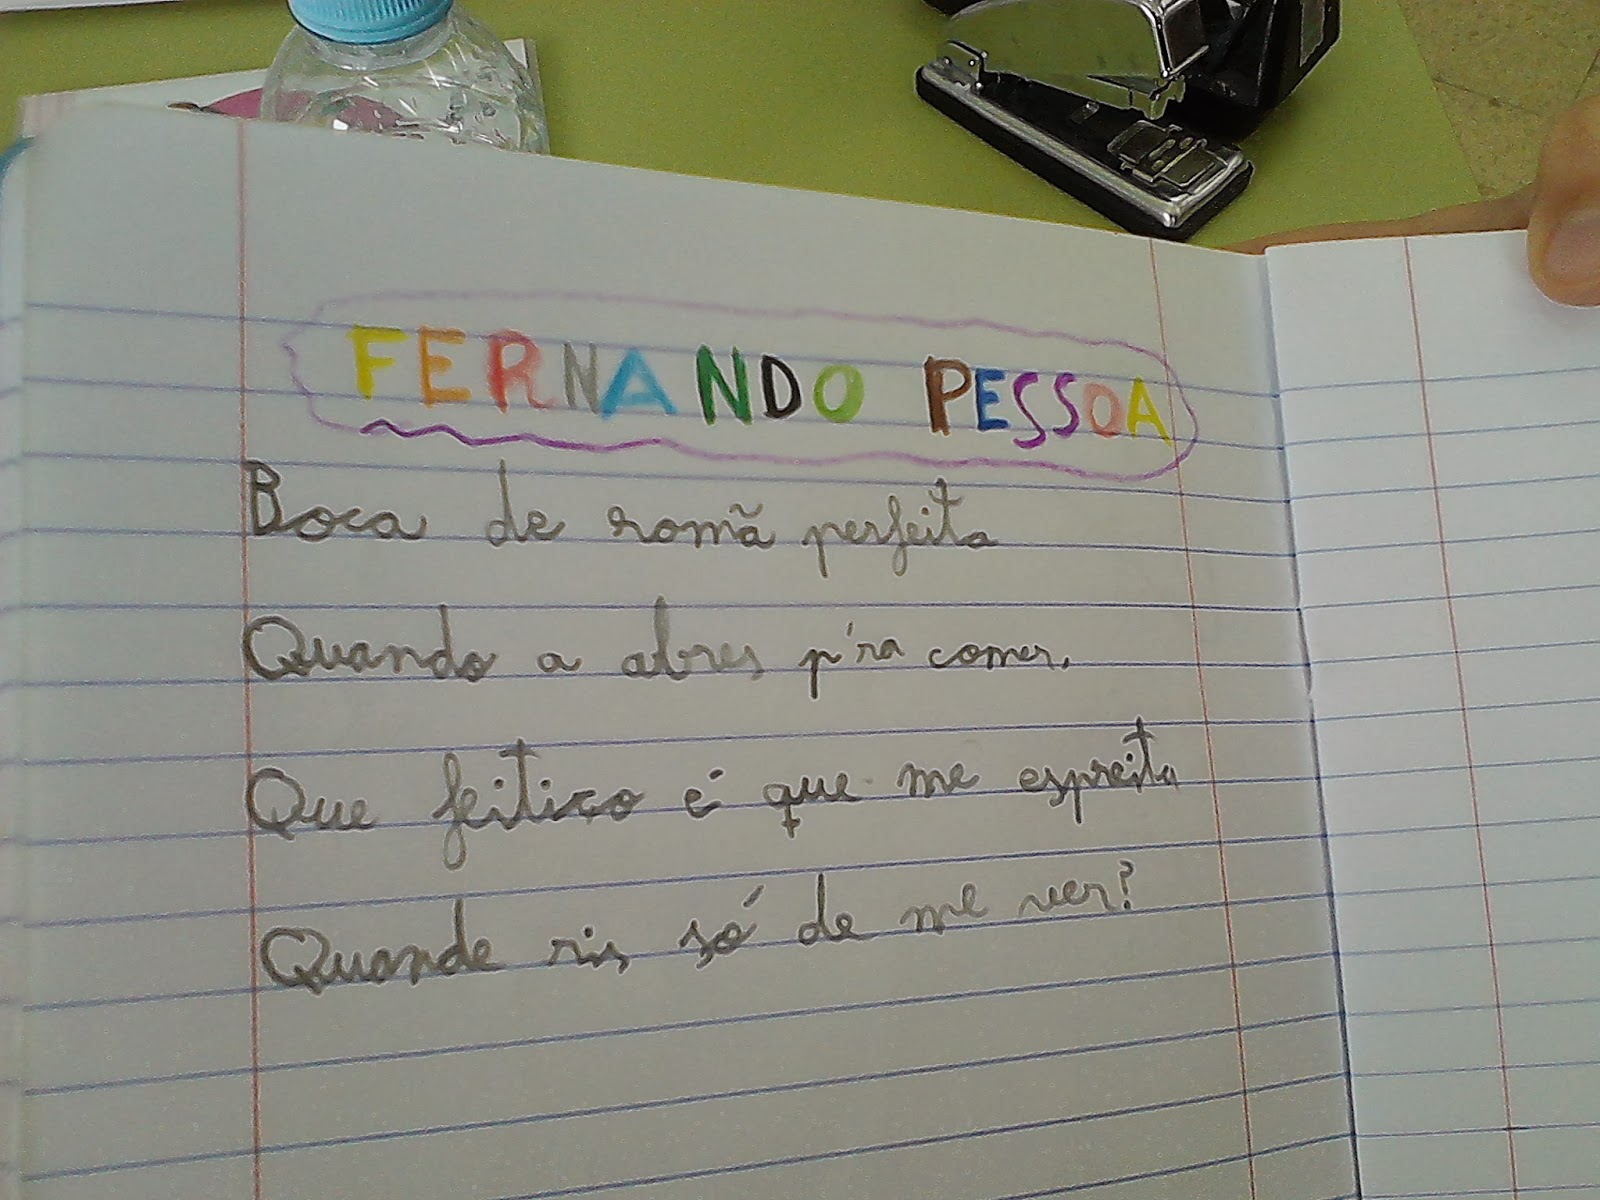 FERNANDO PESSOA
Boca de romã perfeita
Quando a abres p'ra comer.
Que feitiço é que me espreita
Quande ris só de me ver?